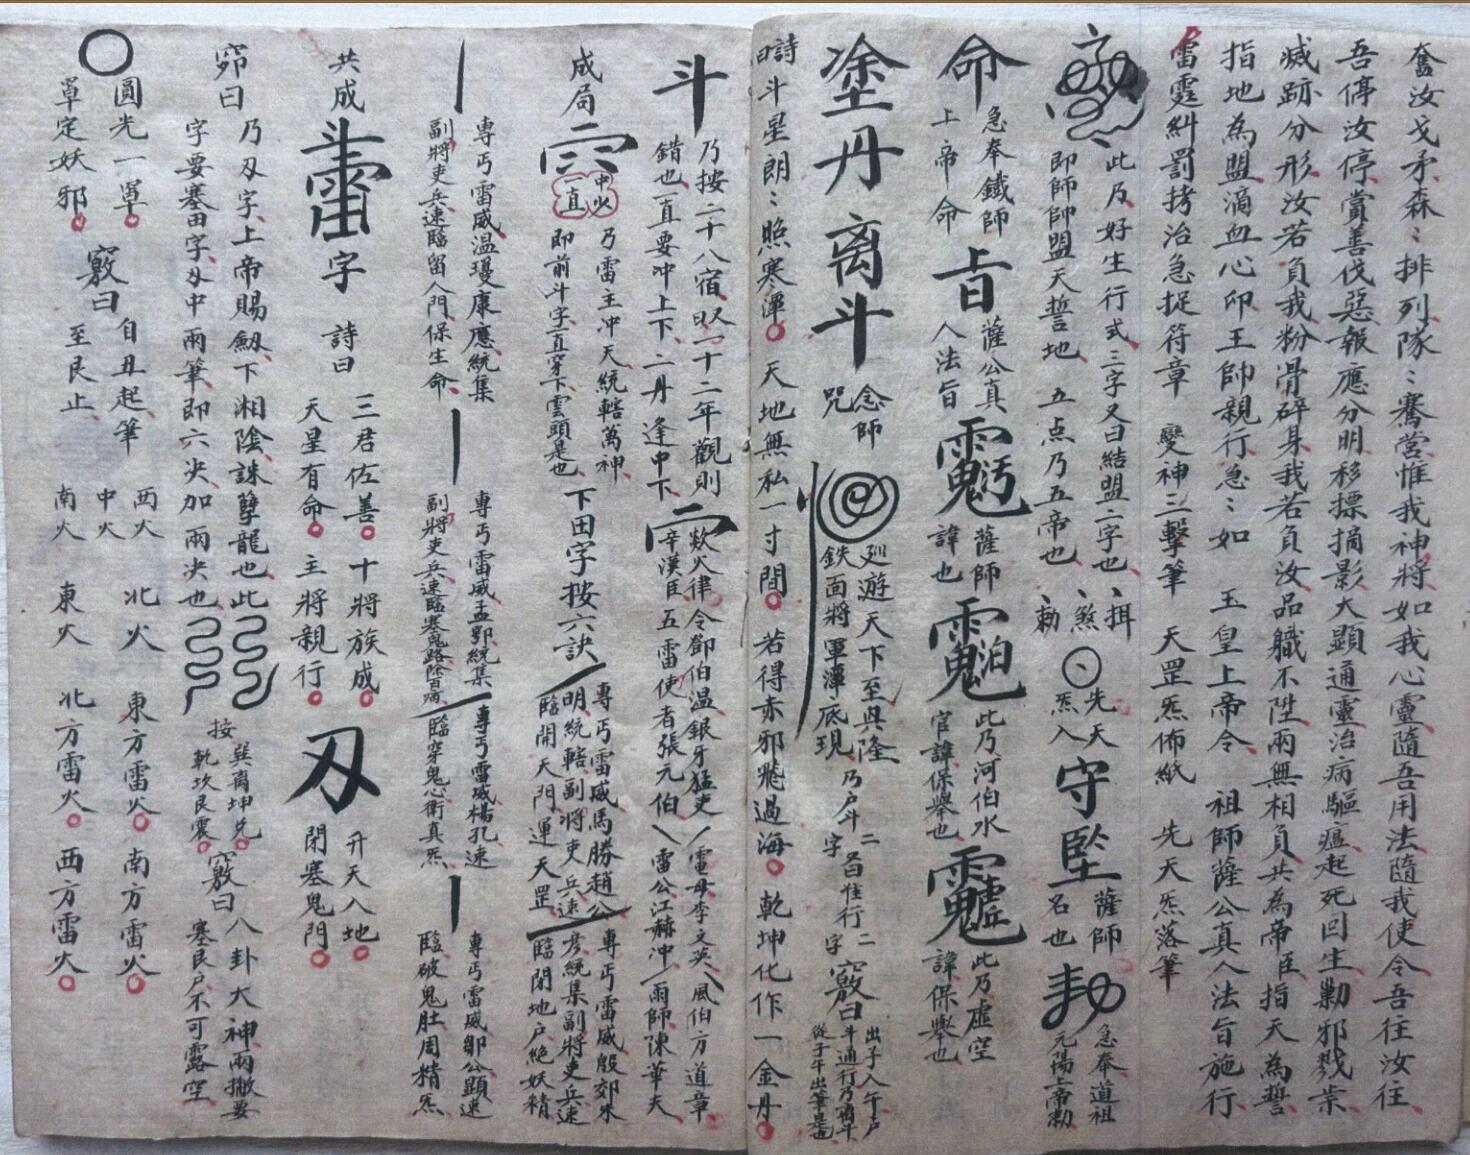 奮汝戈矛森〻排列隊〻騫営惟我神將如我心靈隨吾用法隨我使令吾往汝往
吾停汝停賞善伐惡報應分明移摽摘影大顯通靈治病驅瘟起死回生勦邪戮祟
滅跡分形汝若負我粉骨碎身我若負汝品職不陞兩無相負共為帝臣指天為誓
指地為盟滴血心卬王帥親行急〻如 玉皇上帝令 祖師薩公真人法旨施行
雷霆糾罰拷治急捉符章 變神三擊筆 天罡炁佈紙 先天炁落筆
此乃好生行式三字又曰結盟二字也
即師帥盟天誓地 五点乃五帝也
煞
先天
炁入
守
薩師
名也
急奉道祖
元陽上帝勅
命
急奉鐵師
上帝命
旨
薩公真
人法旨
薩師
諱也
此乃河伯水
官諱保舉也
此乃虛空
諱保舉也
塗丹离斗
念師
咒
廵遊天下至興隆
鉄面將軍渾底現
乃户斗二
字
行二
字
竅曰
出子入午户
斗通行乃
從子午出筆是也
詩
曰
斗星朗〻照寒潭 天地無私一寸間 若得赤邪飛過海 乾坤化作一金丹
斗
乃按二十八宿又一十二年觀則
錯也一直要冲上下二丹逢中下
欻火律令鄧伯温銀牙猛吏
辛漢臣五雷使者張元伯
電母李文英 風伯方道章
雷公江赫冲 雨師陳華夫
成局
中火
直
乃雷王冲天統轄萬神
即前斗字一直穿下雲頭是也
下田字按六訣
專丐雷威馬勝趙公
明統轄副將吏兵速
臨開天門運天罡
專丐雷威殷郊朱
彥統集副將吏兵速
臨閉地户絶妖精
專丐雷威温瓊康應統集
副將吏兵速臨留人門保生命
專丐雷威孟鄂統集
副將吏兵速臨塞鬼路除百病
專丐雷威楊孔速
臨穿鬼心衛真炁
專丐雷威鄒公顯速
臨破鬼肚周精炁
共成
字
詩曰
三君佐善 十將族成
天星有命 主將親行
刄
升天入地
閉塞鬼門
窍曰
乃刄字上帝賜劔下湘陰誅孽龍也此
字要塞田字刄中兩筆即六决加兩决也
按
巽离坤兑
軋坎艮震
竅曰
八卦大神兩撇要
塞艮户不可露空
圓光一罩
罩定妖邪
竅曰
自丑起筆
至艮止
西火
中火
南火
北火
東火
東方雷火 南方雷火
北方雷火 西方雷火